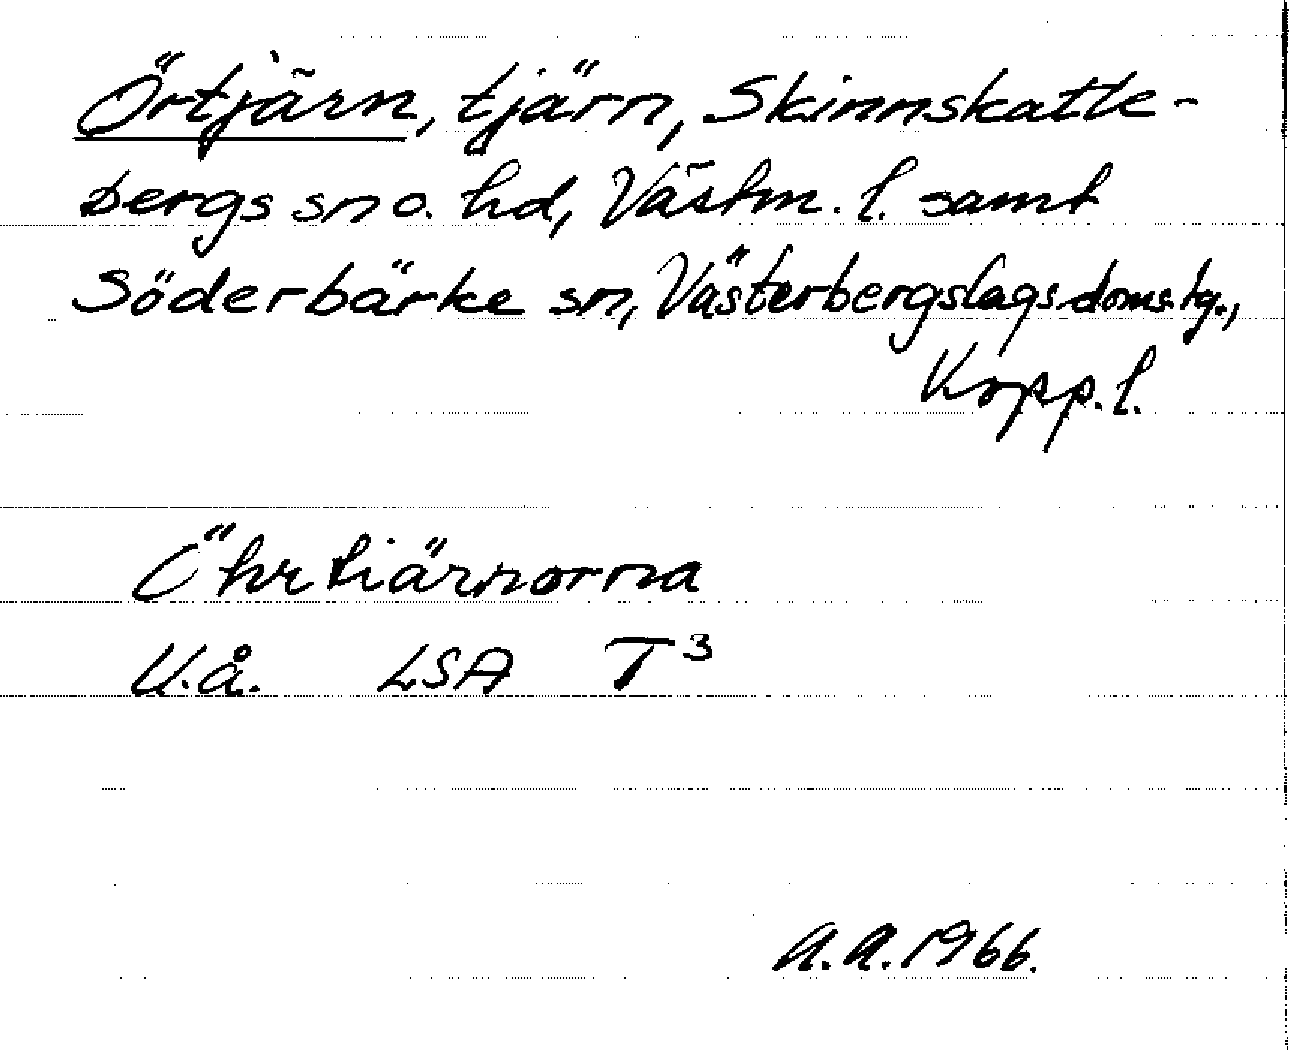 Örtjärn, tjärn, Skinnskatte-
bergs sn o. hd, Västm. l. samt
Söderbärke sn, Västerbergslags doms.tg.,
Kopp. l.
Öhrtiärnorna
U.å. LSA T³
A.A. 1966.